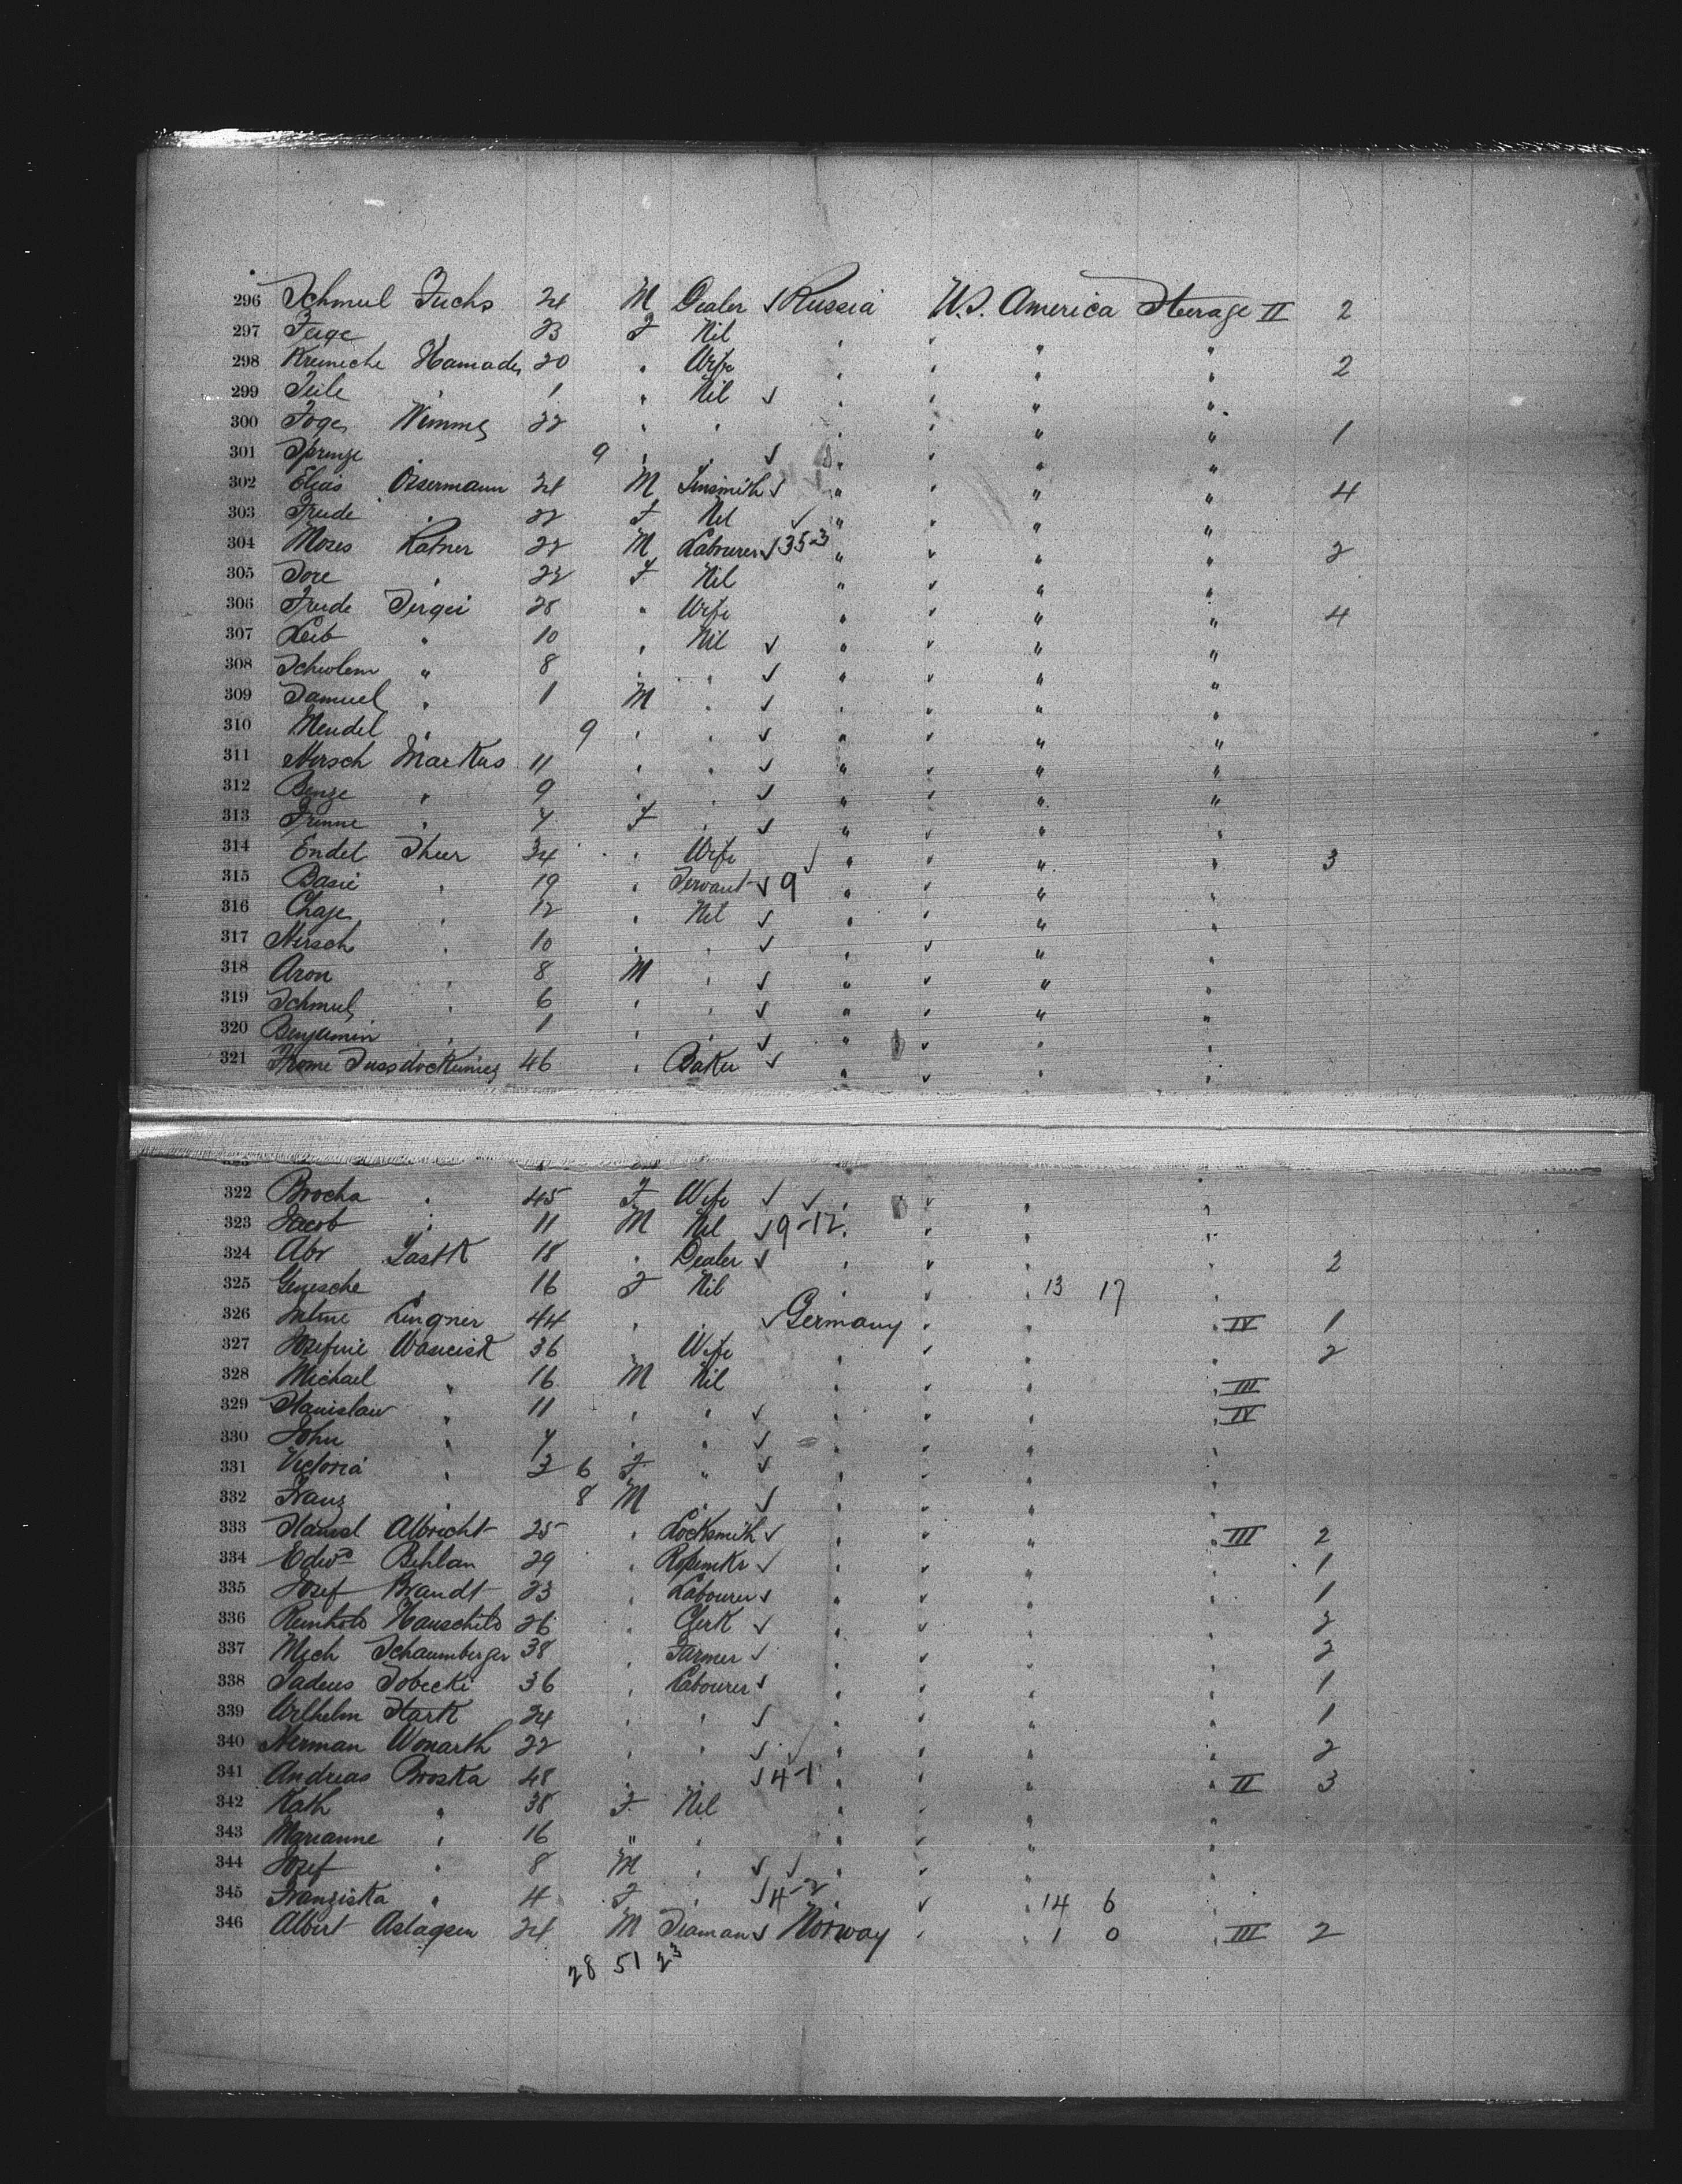 296 Schmul Fuchs 24 M Dealer ✓ Russia U.S. America Sterage II 2
297 Feige 23 F Nil " " " "
298 Kreineche Hamades 20 " Wife " " " " 2
299 Teile " 1 " Nil ✓ " " " "
300 Foge Wimme 22 " " " " " " 1
301 Sprinze " 9 " " ✓ " " " "
302 Elias Ossermann 24 M Tinsmith ✓ " " " " 4
303 Freide " 22 F Nil ✓ " " " "
304 Moses Ratner 22 M Labourer ✓ 35-3 " " " " 2
305 Dore " 22 F Nil " " " "
306 Freide Sergei 28 " Wife " " " " 4
307 Leib " 10 " Nil ✓ " " " "
308 Scholem " 8 " " ✓ " " " "
309 Samuel " 1 M " ✓ " " " "
310 Mendel " 9 " " ✓ " " " "
311 Hersch Markus 11 " " ✓ " " " "
312 Benze " 9 " " ✓ " " " "
313 " 7 F " ✓ " " " "
314 Endel Scheer 34 " Wife ✓ " " " " 3
315 Basie " 19 " Servant ✓ 9 " " " "
316 Chaje " 12 " Nil ✓ " " " "
317 Hersch " 10 " " ✓ " " " "
318 Aron " 8 M " ✓ " " " "
319 Schmul " 6 " " ✓ " " " "
320 Benjamin " 1 " " ✓ " " " "
321 46 " Baker ✓ " " " "
322 Brocha " 45 F Wife ✓ ✓ " " " "
323 Jacob " 11 M Nil ✓ 9-12 " " " "
324 Abr Lastk 18 " Dealer ✓ " " " " 2
325 Genesche " 16 F Nil " " " 13 17 "
326 Lingner 44 " " ✓ Germany " " " IV 1
327 Josefine Wasucisk 36 " Wife " " " " 2
328 Michael " 16 M Nil " " " " III
329 Stanislaw " 11 " " ✓ " " " " IV
330 John " 7 " " ✓ " " " "
331 Victoria " 3 6 F " ✓ " " " "
332 Franz " 8 M " ✓ " " " "
333 Albricht 25 " Locksmith ✓ " " " " III 2
334 Edwd Behlau 29 " Ropemkr ✓ " " " " 1
335 Josef Brandt 23 " Labourer ✓ " " " " 1
336 Reinhold Hauschild 26 " Clerk ✓ " " " " 2
337 Mich Schaumberger 38 " Farmer ✓ " " " " 2
338 Tadeus Sobecki 36 " Labourer ✓ " " " " 1
339 Wilhelm Stark 24 " " ✓ " " " " 1
340 Herman Wonarth 22 " " ✓ ✓ " " " " 2
341 Andreas Broska 48 " " ✓ 4-1 " " " " II 3
342 Kath " 38 F Nil " " " "
343 Marianne " 16 " " " " " "
344 Josef " 8 M " ✓ ✓ " " " "
345 Franziska " 4 F " ✓ 4-2 " " " 14 6 "
346 Albert Aslagsen 24 M Seaman ✓ Norway " " 1 0 " III 2
28 51 23